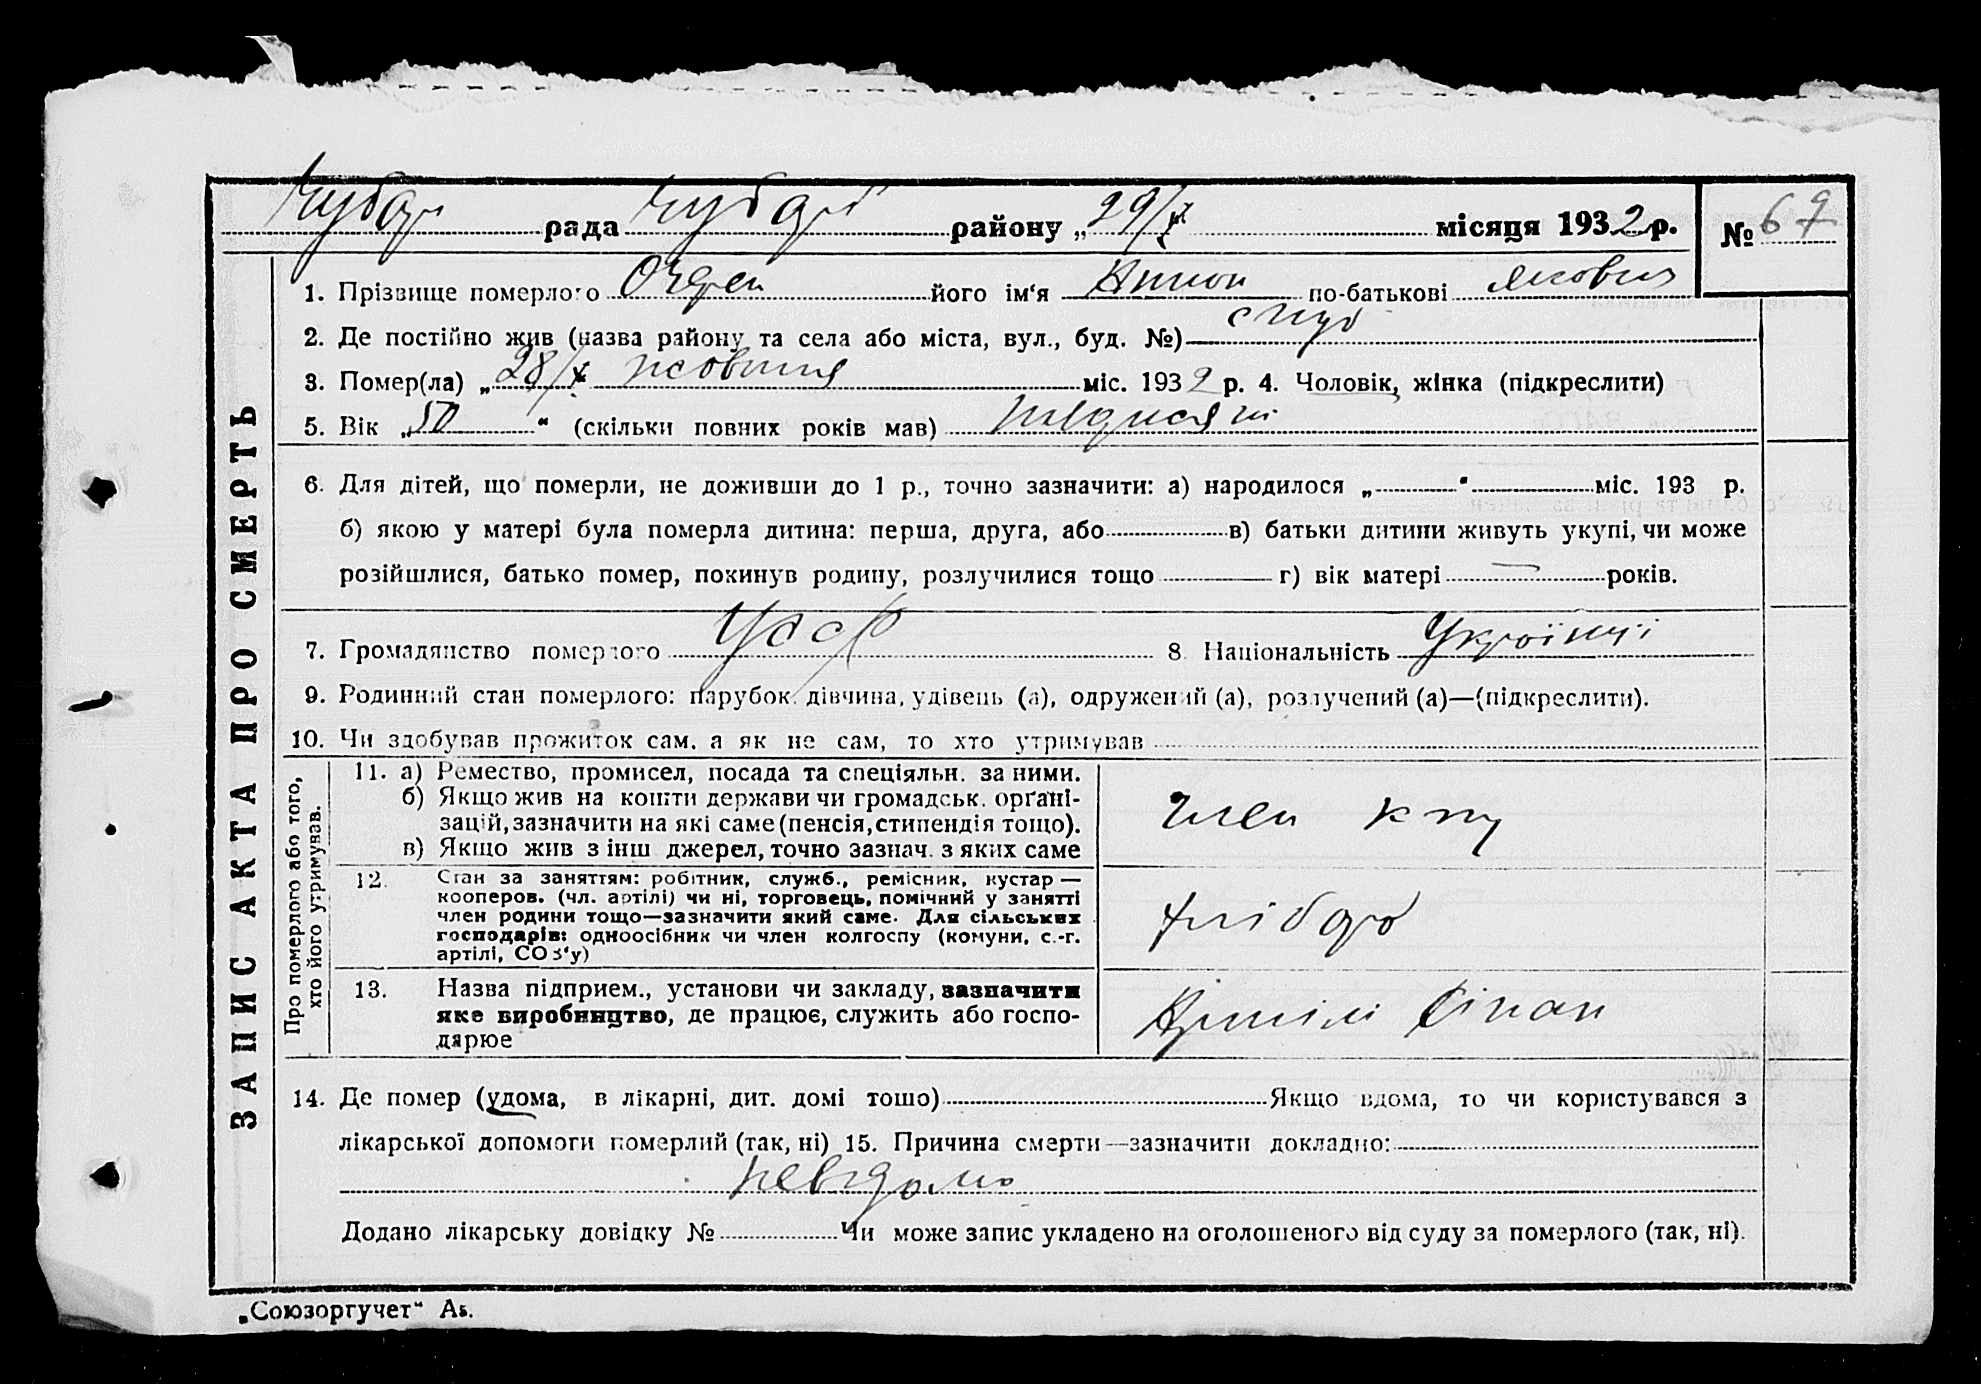 Чубар рада Чубар району „ 29/X місяця 1932 р. № 69
ЗАПИС АКТА ПРО СМЕРТЬ
1. Прізвище померлого його ім'я Антон по-батькові Якович
2. Де постійно жив (назва району та села або міста, вул., буд. №)
3. Помер(ла) „ 28/X жовтня міс. 1932 р. 4. Чоловік, жінка (підкреслити)
5. Вік „ 50 “ (скільки повних років мав) півдисяті
6. Для дітей, що померли, не доживши до 1 р., точно зазначити: а) народилося „ “ міс. 193 р.
б) якою у матері була померла дитина: перша, друга, або в) батьки дитини живуть укупі, чи може
розійшлися, батько помер, покинув родину, розлучилися тощо г) вік матері — років.
7. Громадянство померлого УССР 8. Національність Українці
9. Родинний стан померлого: парубок, дівчина, удівець (а), одружений (а), розлучений (а)—(підкреслити).
10. Чи здобував прожиток сам, а як не сам, то хто утримував
Про померлого або того,
хто його утримував.
11. а) Ремество, промисел, посада та спеціяльн. за ними.
б) Якщо жив на кошти держави чи громадськ. органі-
зацій, зазначити на які саме (пенсія, стипендія тощо).
в) Якщо жив з інш джерел, точно зазнач. з яких саме
член
12. Стан за заняттям: робітник, служб., ремісник, кустар —
кооперов. (чл. артілі) чи ні, торговець, помічний у занятті
член родини тощо—зазначити який саме. Для сільських
господарів: одноосібник чи член колгоспу (комуни, с.-г.
артілі, СОЗ'у)
хлібор
13. Назва підприєм., установи чи закладу, зазначити
яке виробництво, де працює, служить або госпо-
дарює
Артілі
14. Де помер (удома, в лікарні, дит. домі тощо) Якщо вдома, то чи користувався з
лікарської допомоги померлий (так, ні) 15. Причина смерти—зазначити докладно:
невідомо
Додано лікарську довідку № Чи може запис укладено на оголошеного від суду за померлого (так, ні).
„Союзоргучет“ А5.